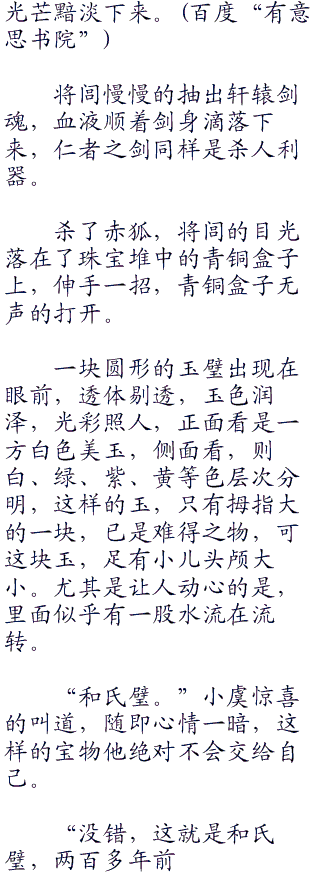 光芒黯淡下来。(百度“有意
思书院”)
将闾慢慢的抽出轩辕剑
魂，血液顺着剑身滴落下
来，仁者之剑同样是杀人利
器。
杀了赤狐，将闾的目光
落在了珠宝堆中的青铜盒子
上，伸手一招，青铜盒子无
声的打开。
一块圆形的玉璧出现在
眼前，透体剔透，玉色润
泽，光彩照人，正面看是一
方白色美玉，侧面看，则
白、绿、紫、黄等色层次分
明，这样的玉，只有拇指大
的一块，已是难得之物，可
这块玉，足有小儿头颅大
小。尤其是让人动心的是，
里面似乎有一股水流在流
转。
“和氏璧。”小虞惊喜
的叫道，随即心情一暗，这
样的宝物他绝对不会交给自
己。
“没错，这就是和氏
璧，两百多年前